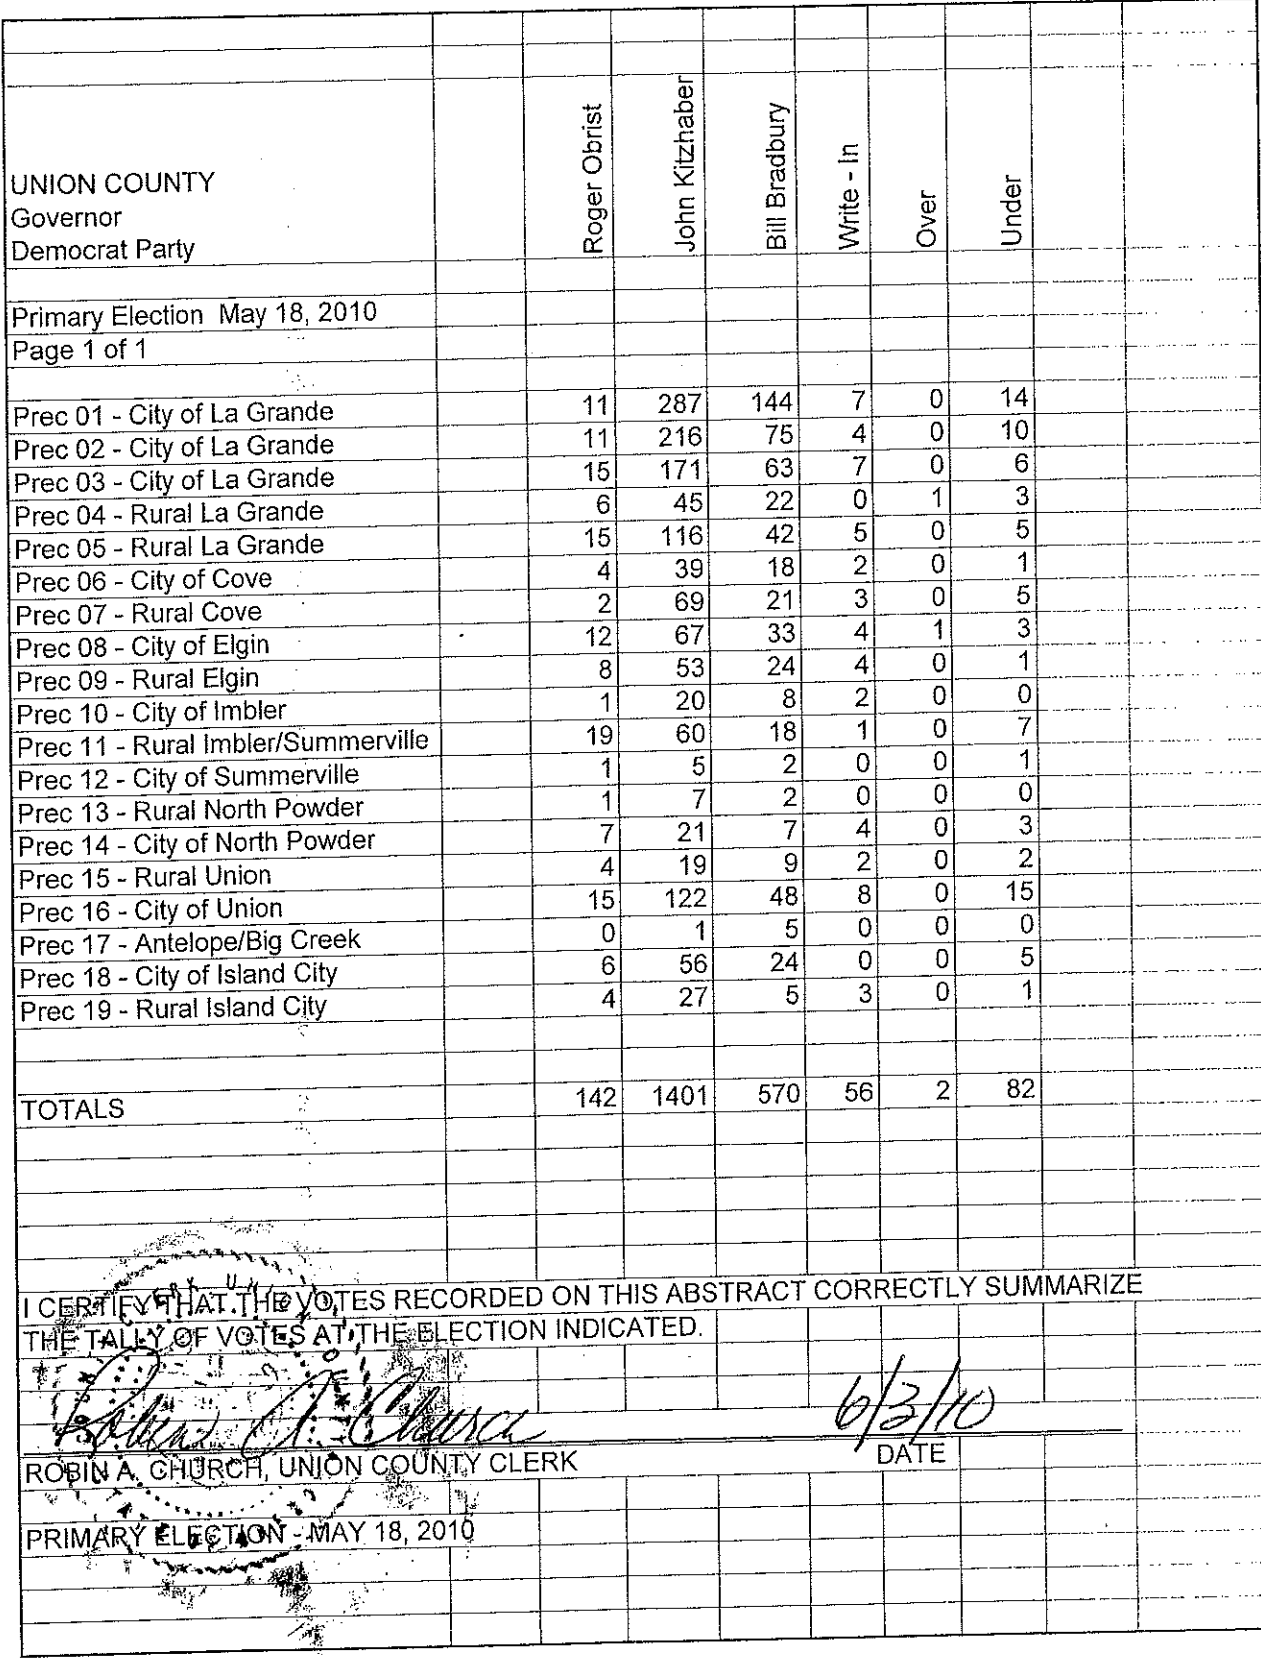 UNION COUNTY
Governor
Democrat Party
Roger Obrist John Kitzhaber Bill Bradbury Write - In Over Under
Primary Election May 18, 2010
Page 1 of 1
Prec 01 - City of La Grande 11 287 144 7 0 14
Prec 02 - City of La Grande 11 216 75 4 0 10
Prec 03 - City of La Grande 15 171 63 7 0 6
Prec 04 - Rural La Grande 6 45 22 0 1 3
Prec 05 - Rural La Grande 15 116 42 5 0 5
Prec 06 - City of Cove 4 39 18 2 0 1
Prec 07 - Rural Cove 2 69 21 3 0 5
Prec 08 - City of Elgin 12 67 33 4 1 3
Prec 09 - Rural Elgin 8 53 24 4 0 1
Prec 10 - City of Imbler 1 20 8 2 0 0
Prec 11 - Rural Imbler/Summerville 19 60 18 1 0 7
Prec 12 - City of Summerville 1 5 2 0 0 1
Prec 13 - Rural North Powder 1 7 2 0 0 0
Prec 14 - City of North Powder 7 21 7 4 0 3
Prec 15 - Rural Union 4 19 9 2 0 2
Prec 16 - City of Union 15 122 48 8 0 15
Prec 17 - Antelope/Big Creek 0 1 5 0 0 0
Prec 18 - City of Island City 6 56 24 0 0 5
Prec 19 - Rural Island City 4 27 5 3 0 1
TOTALS 142 1401 570 56 2 82
I CERTIFY THAT THE VOTES RECORDED ON THIS ABSTRACT CORRECTLY SUMMARIZE
THE TALLY OF VOTES AT THE ELECTION INDICATED.
Robin A. Church 6/3/10
ROBIN A. CHURCH, UNION COUNTY CLERK DATE
PRIMARY ELECTION - MAY 18, 2010